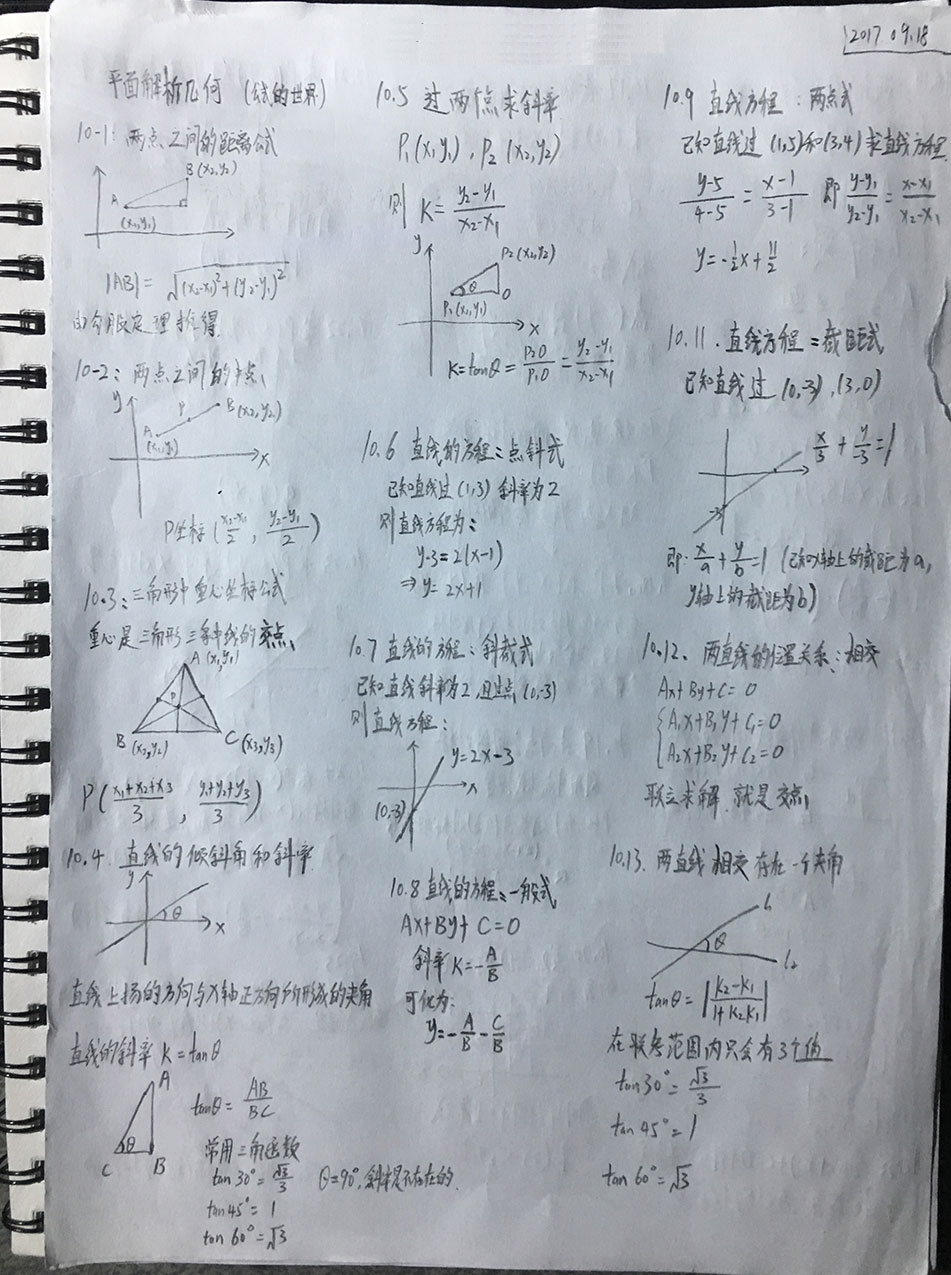 2017 09.18
平面解析几何 (公式的世界)
10-1: 两点之间的距离公式
B (x₂,y₂)
A
(x₁,y₁)
|AB| = √(x₂-x₁)²+(y₂-y₁)²
由勾股定理推得.
10-2: 两点之间的中点
y
P
B (x₂,y₂)
A
(x₁,y₁)
x
P坐标 (x₂-x₁/2 , y₂-y₁/2)
10.3: 三角形中重心坐标公式
重心是三角形三条中线的交点
A (x₁,y₁)
P
B (x₂,y₂)
C (x₃,y₃)
P(x₁+x₂+x₃/3 , y₁+y₂+y₃/3)
10.4. 直线的倾斜角和斜率
y
θ
x
直线上扬的方向与X轴正方向所形成的夹角
直线的斜率 K = tanθ
A
θ
C
B
tanθ = AB/BC
常用三角函数
tan 30° = √3/3
θ=90°,斜率是不存在的.
tan 45° = 1
tan 60° = √3
10.5 过两个点求斜率
P₁(x₁y₁) , P₂ (x₂,y₂)
则 K = y₂-y₁/x₂-x₁
y
P₂ (x₂,y₂)
θ
O
P₁ (x₁,y₁)
x
K=tanθ = P₂O/P₁O = y₂-y₁/x₂-x₁
10.6 直线的方程: 点斜式
已知直线过 (1,3) 斜率为2
则直线方程为:
y-3=2(x-1)
⇒ y= 2x+1
10.7 直线的方程: 斜截式
已知直线斜率为2,且过点 (0,-3)
则直线方程:
y=2x-3
x
(0,-3)
10.8 直线的方程: 一般式
Ax+By+ C=0
斜率 K=-A/B
可化为:
y=-A/B-C/B
10.9 直线方程: 两点式
已知直线过 (1,5)和(3,4) 求直线方程
y-5/4-5 = x-1/3-1 即 y-y₁/y₂-y₁ = x-x₁/x₂-x₁
y=-½x+11/2
10.11. 直线方程=截距式
已知直线过 (0,-3) , (3,0)
x/3 + y/-3 =1
即: x/a + y/b =1 (已知x轴上的截距为a,
y轴上的截距为b)
10.12. 两直线的位置关系: 相交
Ax+By+C=0
{A₁x+B₁y+C₁=0
A₂x+B₂y+C₂=0
联立求解 就是交点
10.13. 两直线相交存在一个夹角
l₁
θ
l₂
tanθ = |K₂-K₁/1+K₂K₁|
在联考范围内只会有3个值
tan 30° = √3/3
tan 45° = 1
tan 60° = √3